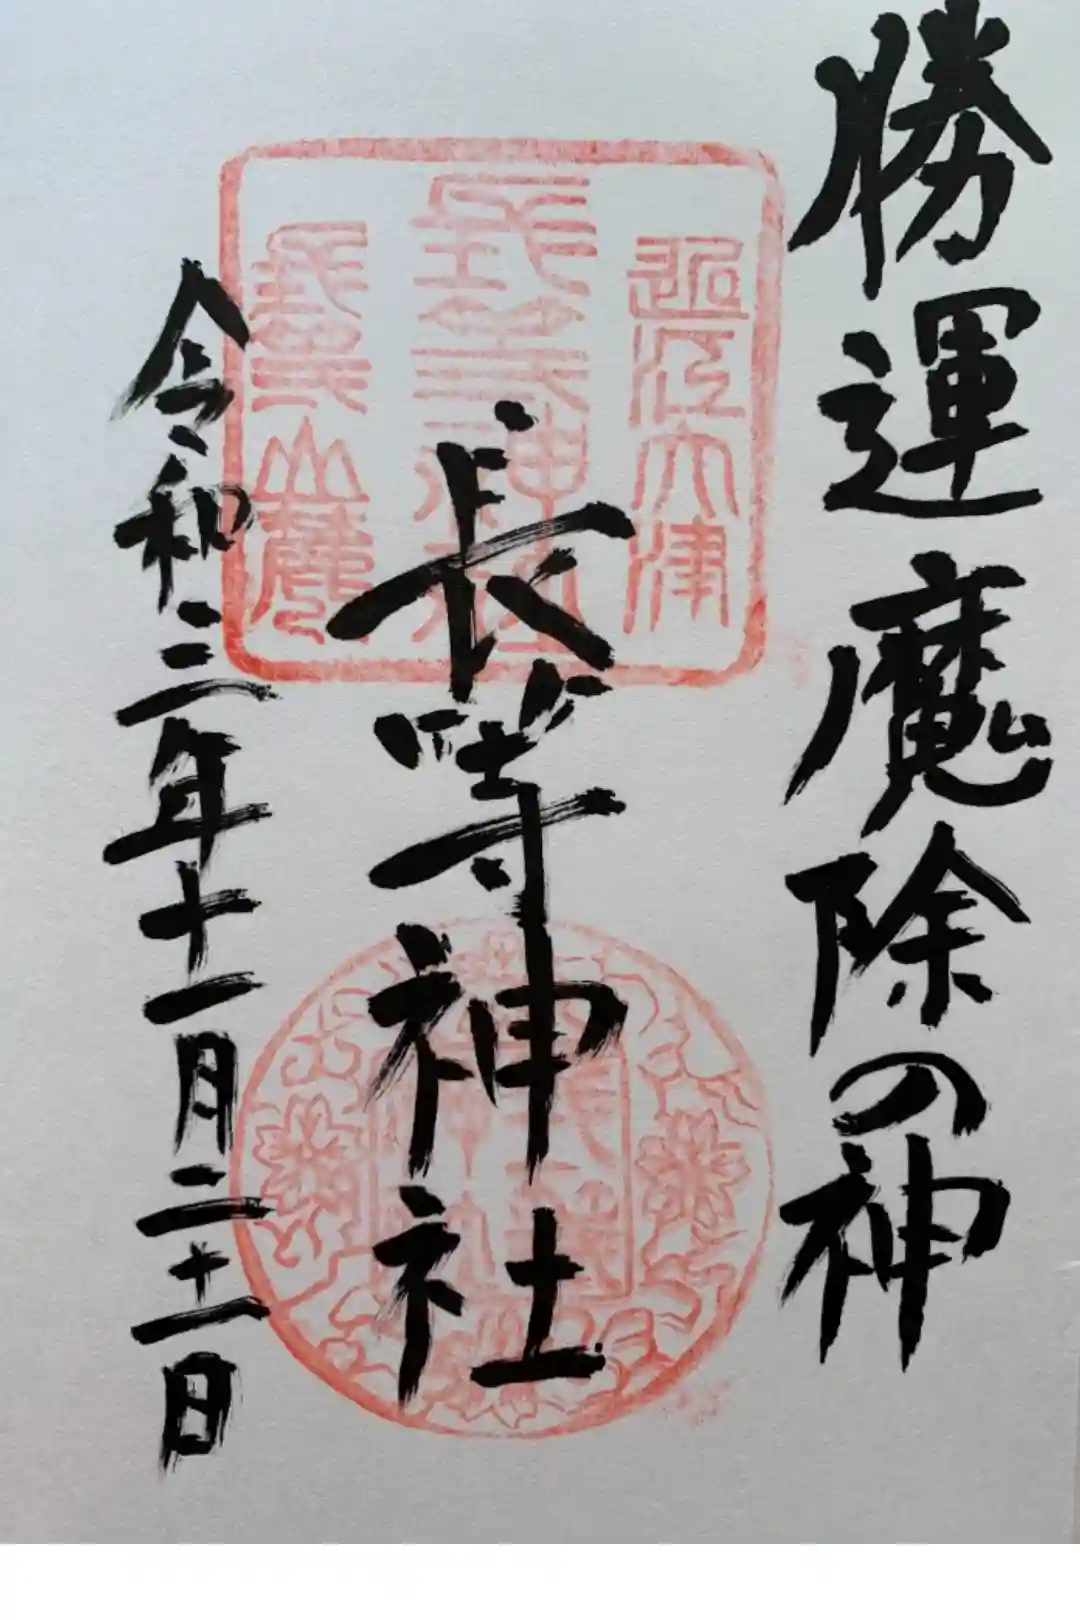 勝運魔除の神
近江大津
長等神社
長等山麓
長等神社
令和三年十一月二十一日